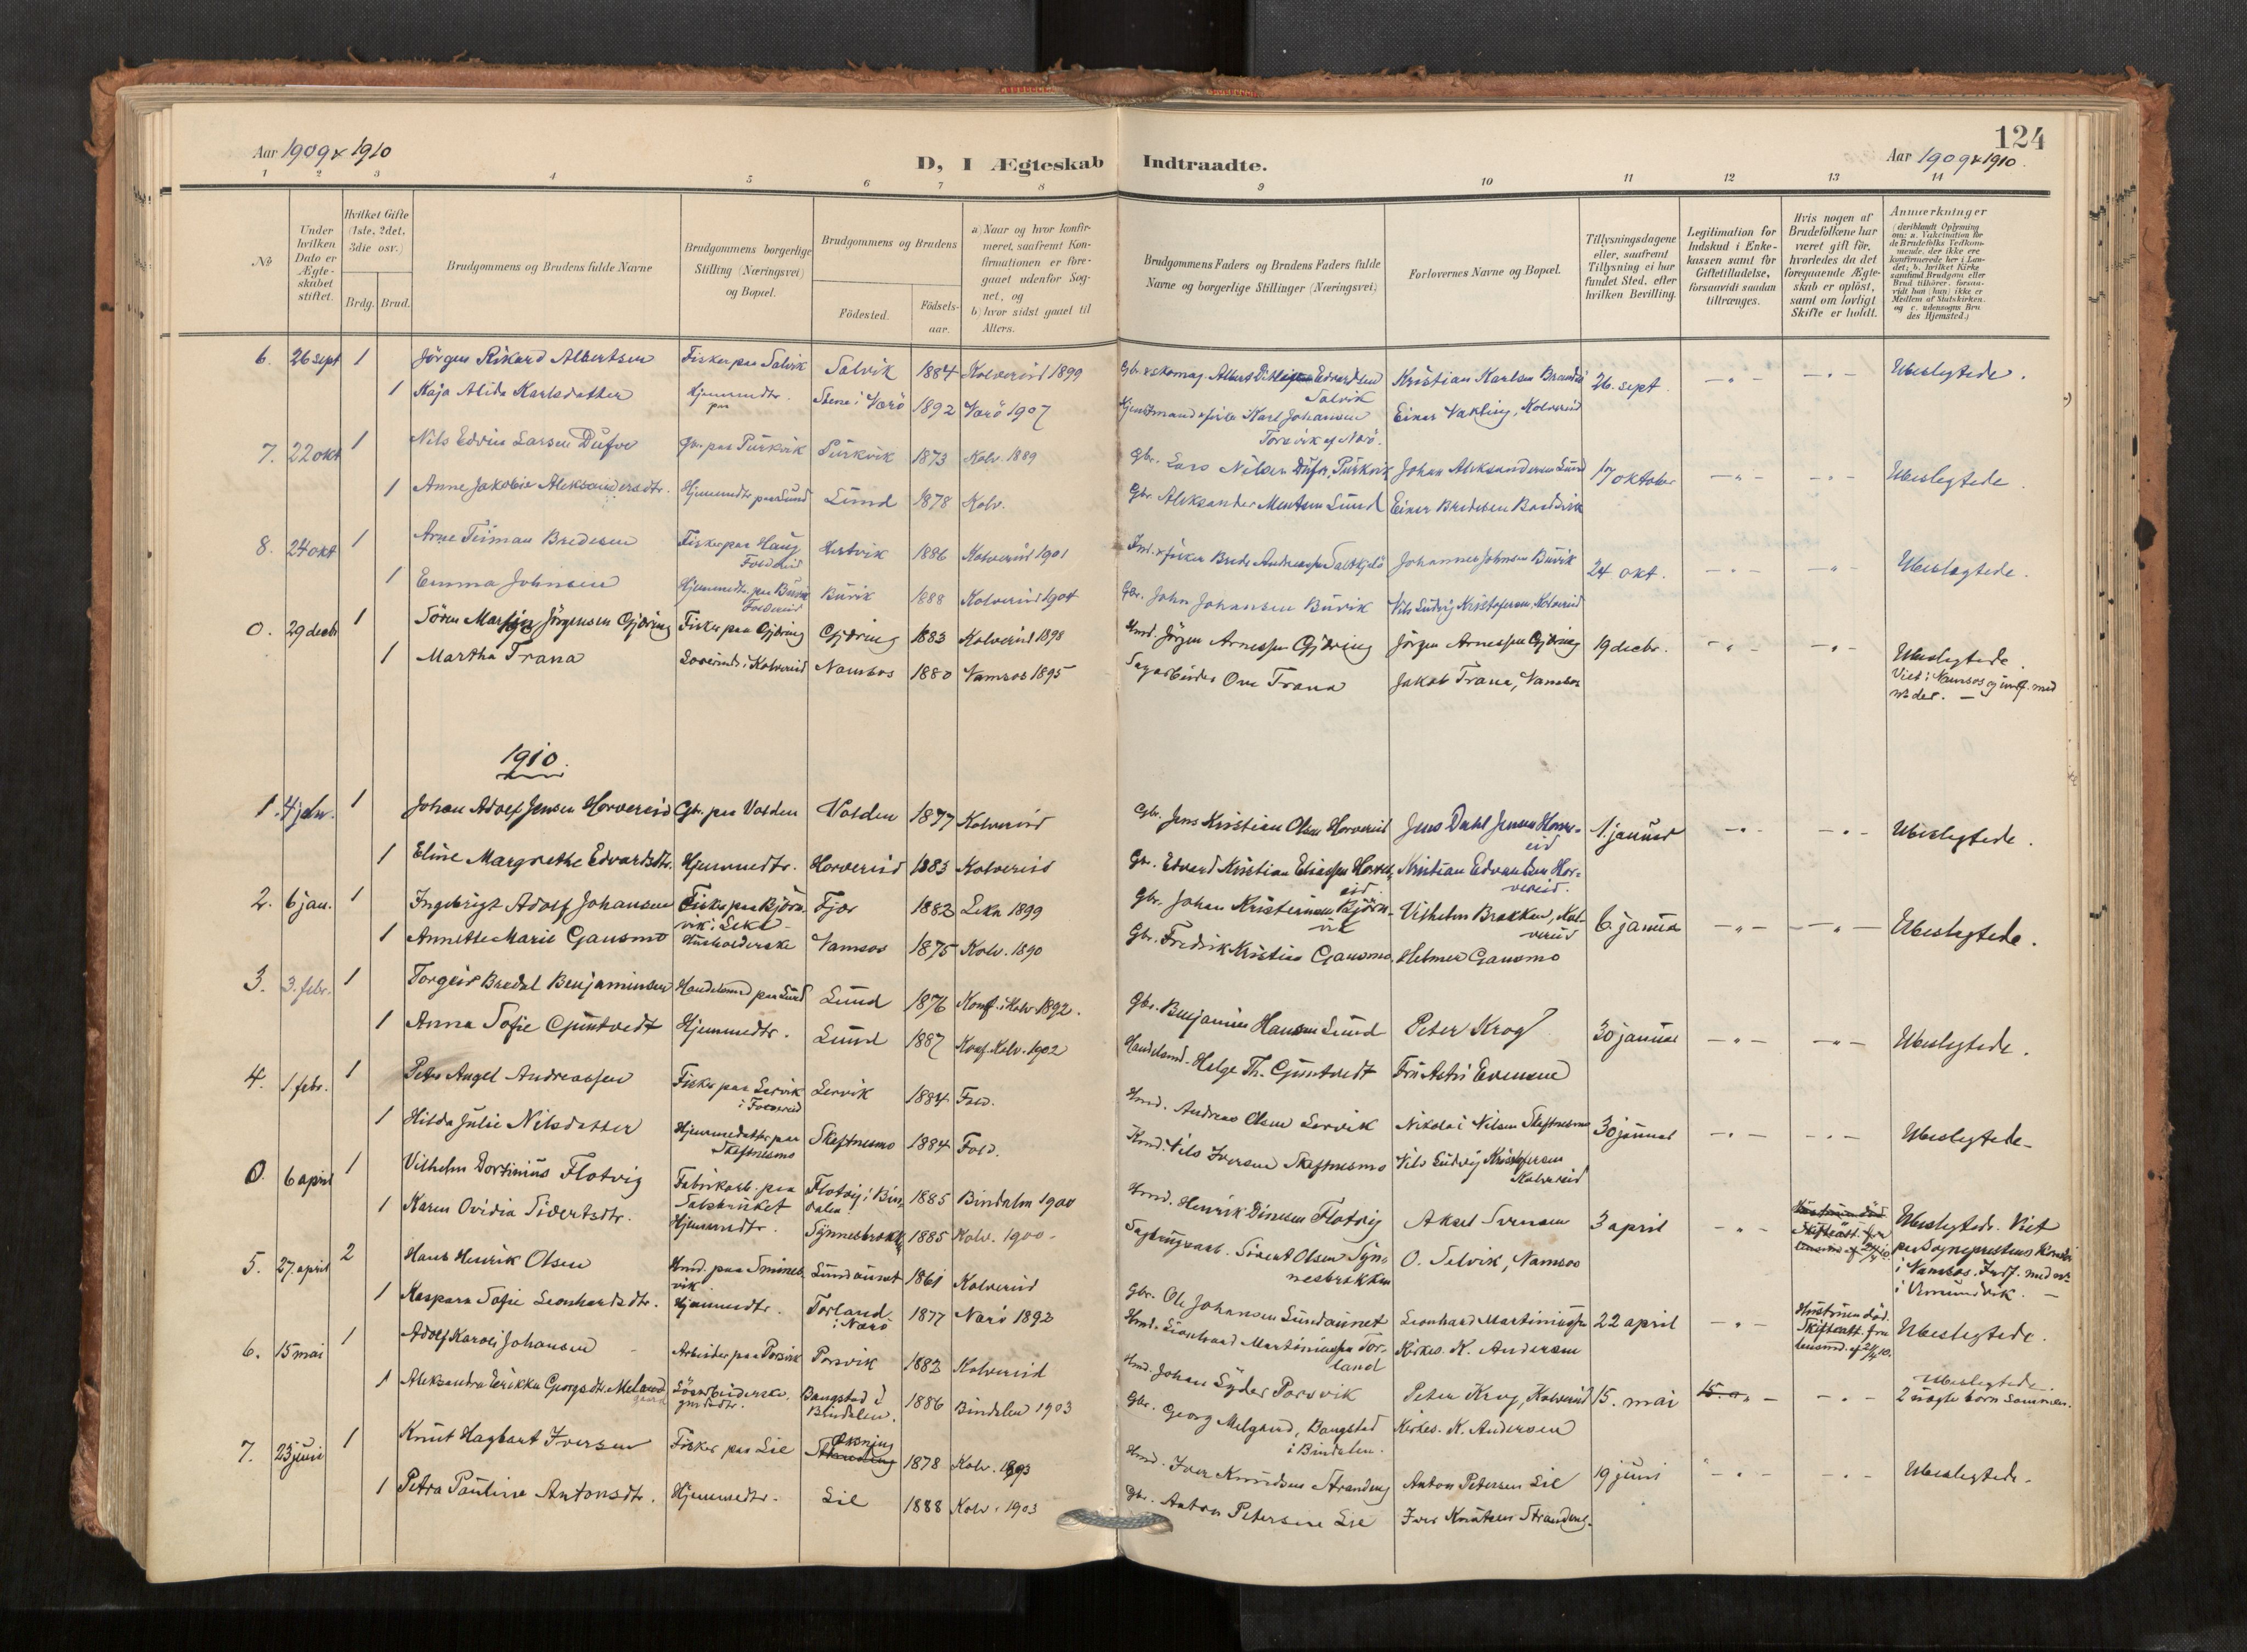 124
Aar 1909 & 1910
D, I Ægteskab Indtraadte.
Aar 1909 & 1910.
1 2 3 4 5 6 7 8 9 10 11 12 13 14
No
Under hvilken Dato er Ægteskabet stiftet.
Hvilket Gifte (1ste, 2det, 3die osv.)
Brdg. Brud.
Brudgommens og Brudens fulde Navne
Brudgommens borgerlige Stilling (Næringsvei) og Bopæl.
Brudgommens og Brudens
Födested.
Födsels-aar.
a) Naar og hvor konfirmeret, saafremt Konfirmationen er foregaaet udenfor Sognet, og
b) hvor sidst gaaet til Alters.
Brudgommens Faders og Brudens Faders fulde Navne og borgerlige Stillinger (Næringsvei)
Forlovernes Navne og Bopæl.
Tillysningsdagene eller, saafremt Tillysning ei har fundet Sted, efter hvilken Bevilling.
Legitimation for Indskud i Enkekassen samt for Giftetilladelse, forsaavidt saadan tiltrænges.
Hvis nogen af Brudefolkene har været gift för, hvorledes da det foregaaende Ægteskab er oplöst, samt om lovligt Skifte er holdt.
Anmærkninger
(deriblandt Oplysning om: a. Vakcination for de Brudefolks Vedkommende, der ikke ere konfirmerede her i Landet; b. hvilket Kirkesamfund Brudgom eller Brud tilhörer, forsaavidt han (hun) ikke er Medlem af Statskirken, og c. udensogns Brudes Hjemsted.)
6. 26 sept 1 Jörgen Rikard Albertsen Fisker paa Salvik Salvik 1884 Kolvereid 1899 Edvardsen Salvik Kristian Karlsen 26. sept. Ubeslegtede.
1 Kaja Alida Karlsdatter Hjemmedtr. paa Steine i Nærö 1892 Nærö 1907 Karl Johansen Torsvik af Nærö. Einar Vakting, Kolvereid
7. 22 okt 1 Nils Edvin Larsen Dufve Gbr. paa Purkvik Purkvik 1873 Kolv. 1889 Gbr. Lars Nilsen Purkvik Johan Aleksandersen Lund 17 oktober Ubeslegtede.
1 Anne Jakobie Aleksandersdtr. Hjemmedtr. paa Lund Lund 1878 Kolv. Gbr. Aleksander Mentsen Lund Einar Bredesen
8. 24 okt 1 Arne Teiman Bredesen Fisker paa Haug Foldereid Hestvik 1886 Kolvereid 1901 Brede Andreassen Johannes Johnsen Burik 24 okt. Ubeslegtede.
1 Emma Johnsen Hjemmedtr. paa Burik Foldereid Burik 1888 Kolvereid 1904 Gbr. John Johansen Burik Nils Ludvig Kristofersen, Kolvereid
0. 29 decbr 1 Sören Martin Jörgensen Gjöring Fisker paa Gjöring Gjöring 1883 Kolvereid 1898 Hmd. Jörgen Arnessen Gjöring Jörgen Arnessen Gjöring 19 decbr. Ubeslegtede.
1 Martha Trana Kolvereid Namsos 1880 Namsos 1895 Sagarbeider Ove Trana Jakob Trana, Namsos Viet i Namsos og indf. med nr. der. —
1910.
1. 4 jan. 1 Johan Adolf Jensen Horvereid Gbr. paa Valden Valden 1877 Kolvereid Gbr. Jens Kristian Olsen Horvereid Jens Dahl Jensen Horvereid 1. januar Ubeslegtede.
1 Eline Margrethe Edvardsdtr. Hjemmedtr. Horvereid 1883 Kolvereid Gbr. Edvard Kristian Eliassen Horvereid Kristian Edvardsen Horvereid.
2. 6 jan. 1 Ingebrigt Adolf Johansen Fisker paa Björnvik i Leka Fjær 1882 Leka 1899 Gbr. Johan Kristiansen Björnvik Vilhelm Brakken, Kolvereid 6. januar Ubeslegtede.
1 Annette Marie Gausmo Husholderske Namsos 1875 Kolv. 1890 Gbr. Fredrik Kristian Gausmo Helmer Gausmo
3. 3. febr. 1 Torgeir Bredal Benjaminsen Handelsmd paa Lund Lund 1876 Konf. i Kolv 1892. Gbr. Benjamin Hansen Lund Peter Krog 30 januar Ubeslegtede.
1 Anna Sofie Guntvedt Hjemmedtr. Lund 1887 Konf. Kolv. 1902 Handelsmd. Helge Th. Guntvedt Fru Astri Evensen
4. 1 febr. 1 Peter Angel Andreassen Fisker paa Lervik i Foldereid Lervik 1884 Fold. Hmd. Andreas Olsen Lervik Nikolai Nilsen Skeftnesmo 30 januar Ubeslegtede.
1 Hilda Julie Nilsdatter Hjemmedatter paa Skeftnesmo Skeftnesmo 1884 Fold. Hmd. Nils Iversen Skeftnesmo Nils Ludvig Kristofersen Kolvereid
0. 6 april 1 Vilhelm Dortinius Flotvig Fabrikarb. paa Salsbruket Flotvig i Bindalen 1885 Bindalen 1900 Hmd. Henrik Dinesen Flotvig Aksel Svensen 3 april Ubeslegtede. Viet
1 Karen Ovidia Sivertsdtr. Hjemmedtr. Synnesbrakken 1885 Kolv. 1900. Sivert Olsen Synnesbrakken O. Selvik, Namsos i Namsos. Indf. med nr.
5. 27. april 2 Hans Henrik Olsen Hmd. paa Sminesvik Lundaunet 1861 Kolvereid Gbr. Ole Johansen Lundaunet Leonhard Martiniussen 22 april Hustruen död. Skifteatt. fra lensmd. af 21/4 10. Ubeslegtede.
1 Kaspara Sofie Leonhardsdtr. Hjemmedtr. Torland i Nærö 1877 Nærö 1892 Hmd. Leonhard Martiniussen Torland Kirkes. K. Andersen
6. 15 mai 1 Adolf Karoli Johansen Arbeider paa Porsvik Porsvik 1882 Kolvereid Hmd. Johan Porsvik Peter Krog, Kolvereid 15. mai Ubeslegtede. 2 uægte börn sammen.
1 Aleksandra Erikka Georgsdtr. Melgaard Bangstad i Bindalen. 1886 Bindalen 1903 Gbr. Georg Melgaard, Bangstad i Bindalen. Kirkes. K. Andersen
7. 23 juni 1 Knut Hagbart Iversen Fisker paa Lie 1878 Kolv. 1893 Hmd. Iver Knudsen Strandeng Anton Petersen Lie 19 juni Ubeslegtede.
1 Petra Pauline Antonsdtr. Hjemmedtr. Lie 1888 Kolv. 1903 Gbr. Anton Petersen Lie Iver Knutsen Strandeng.